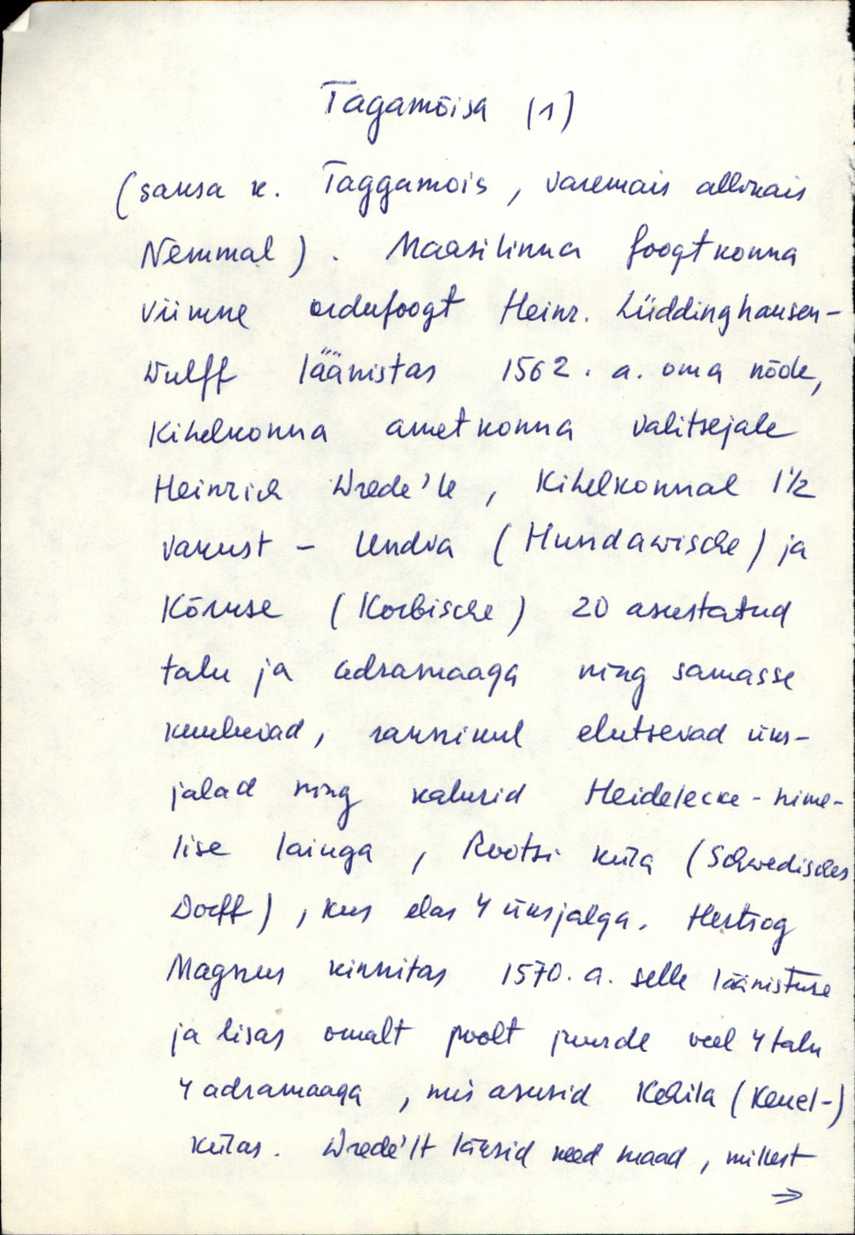 Tagamõisa (1)
(saksa k. Taggamois, varemais allikais
Nemmal). Maasilinna foogtkonna
viimne ordufoogt Heinr. Lüddinghausen-
Wulff läänistas 1562. a. oma nõole,
Kihelkonna ametkonna valitsejale
Heinrich Wrede'le, Kihelkonnal 1½
vakust - Undva (Hundawische) ja
Kõruse (Korbische) 20 asustatud
talu ja adramaaga ning samasse
kuuluvad, rannikul elutsevad üks-
jalad ning kalurid Heidelecke-nime-
lise laiuga, Rootsi küla (Schwedisches
Dorff), kus elas 4 üksjalga. Hertsog
Magnus kinnitas 1570. a. selle läänistuse
ja lisas omalt poolt juurde veel 4 talu
4 adramaaga, mis asusid Kehila (Keuel-)
külas. Wrede'lt läksid need maad, millest
→